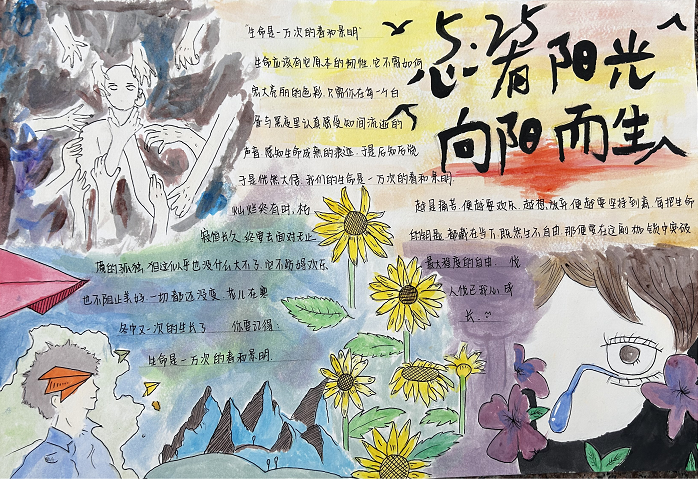 5.25
心有阳光
向阳而生
"生命是一万次的春和景明"
生命应该有它原本的韧性,它不需如何
宏大差丽的色彩,只需你在每一个白
昼与黑夜里认真感受如间流逝的
声音,感知生命成熟的痕迹,于是后知后觉
于是恍然大悟,我们的生命是一万次的春和景明.
灿烂终有时,枯
寂恒长久,终要去面对无止
度的孤独,但这似乎也没什么大不了,它不妨碍欢乐
也不阻止美好,一切都还没变,花儿在寒
冬中又一次的生长了 你要记得:
生命是一万次的春和景明.
越是痛苦,便越要欢乐,越想放弃,便越要坚持到真,每把生命
的钥匙,都藏在当下,既然生不自由,那便要在这副枷锁中突破
最大程度的自由,伐
人伐己我心,成
长.